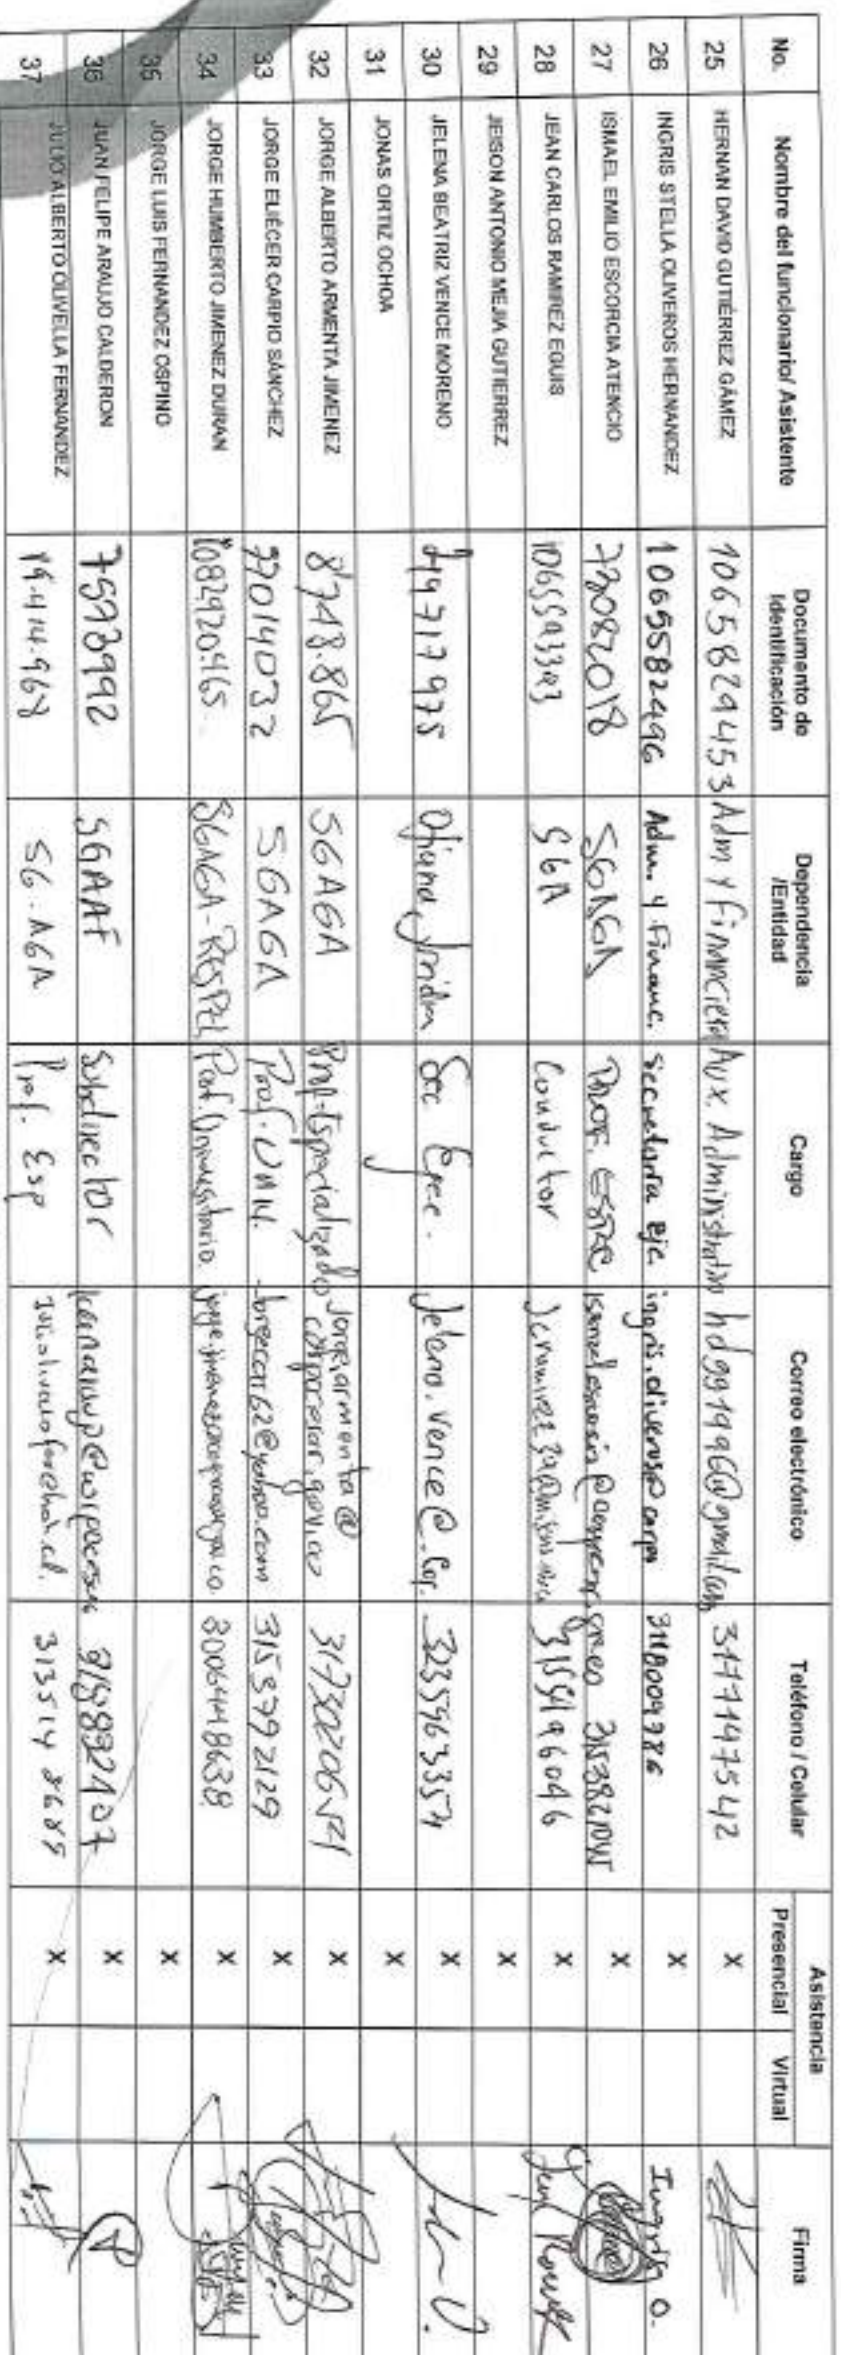 No. Nombre del funcionario/ Asistente Documento de Identificación Dependencia /Entidad Cargo Correo electrónico Teléfono / Celular Asistencia Presencial Virtual Firma
25 HERNAN DAVID GUTIÉRREZ GÁMEZ 1065829453 Adm y financiera Aux. Administrativo hdgg1996@gmail.com 3177147542 X
26 INGRIS STELLA OLIVEROS HERNANDEZ 1065582496 Adm. y Financ. Secretaria Eje. ingris.oliveros@corpo 3118009786 X Ingris O.
27 ISMAEL EMILIO ESCORCIA ATENCIO SGAGA PROF. X
28 JEAN CARLOS RAMIREZ EGUIS 1065593393 SGA Conductor 3155196046 X
29 JEISON ANTONIO MEJIA GUTIERREZ X
30 JELENA BEATRIZ VENCE MORENO 49717975 Oficina Jurídica Sec Ejec. Jelena.vence@.Cor. 3235963354 X
31 JONAS ORTIZ OCHOA X
32 JORGE ALBERTO ARMENTA JIMENEZ 8'748.865 SGAGA Prof-Especializado Jorge.armenta@ corpocesar.gov.co X
33 JORGE ELIÉCER CARPIO SÁNCHEZ 77014032 SGAGA Prof. Univ. Jorgecar162@yahoo.com 3153792129 X
34 JORGE HUMBERTO JIMENEZ DURAN 1082920465 SGAGA-RESPEL Prof. Universitario 3006448638 X
35 JORGE LUIS FERNANDEZ OSPINO X
36 JUAN FELIPE ARAUJO CALDERON 7573992 SGAAF Subdirector X
37 JULIO ALBERTO OLIVELLA FERNANDEZ 19.414.968 SG-AGA Prof. Esp X